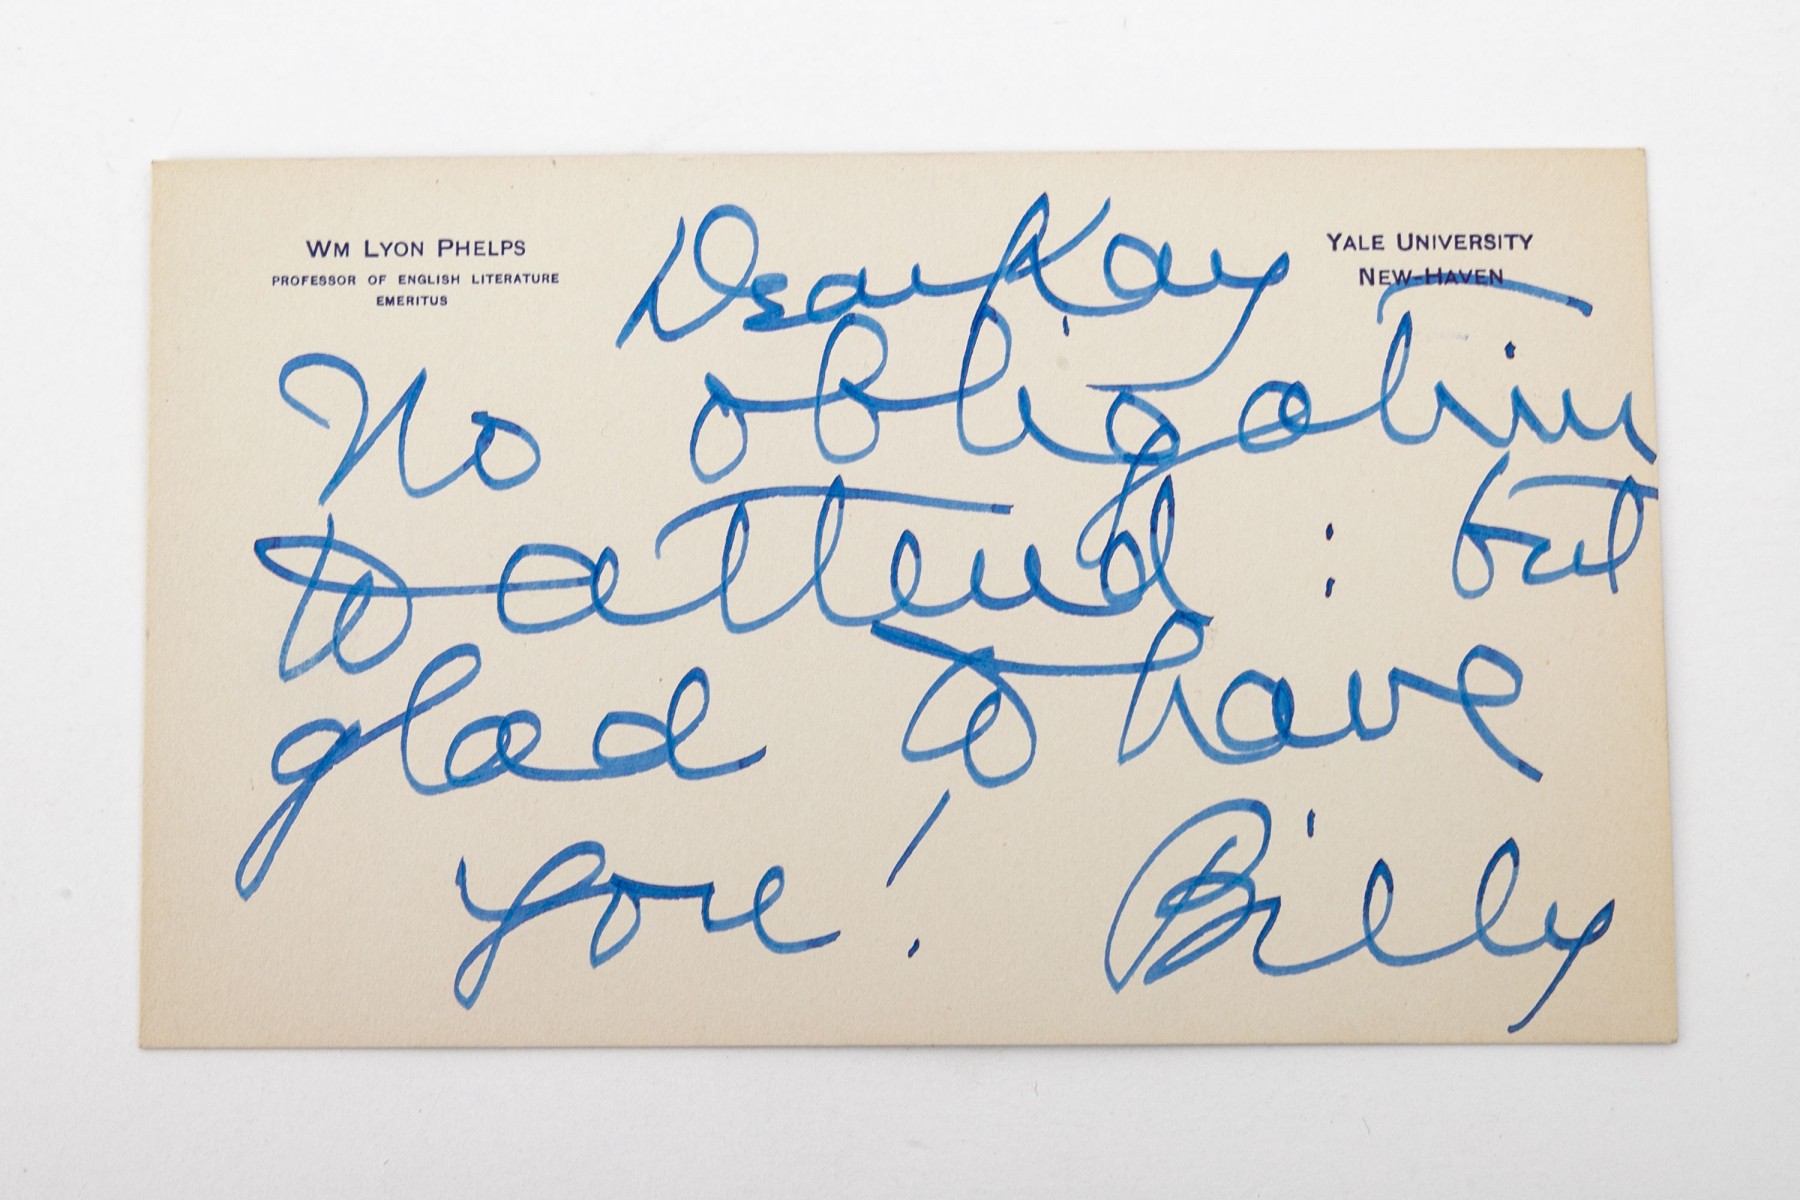 WM LYON PHELPS
PROFESSOR OF ENGLISH LITERATURE
EMERITUS
YALE UNIVERSITY
NEW-HAVEN
Dear Kay
No obligation
to attend : but
glad to have
you! Billy